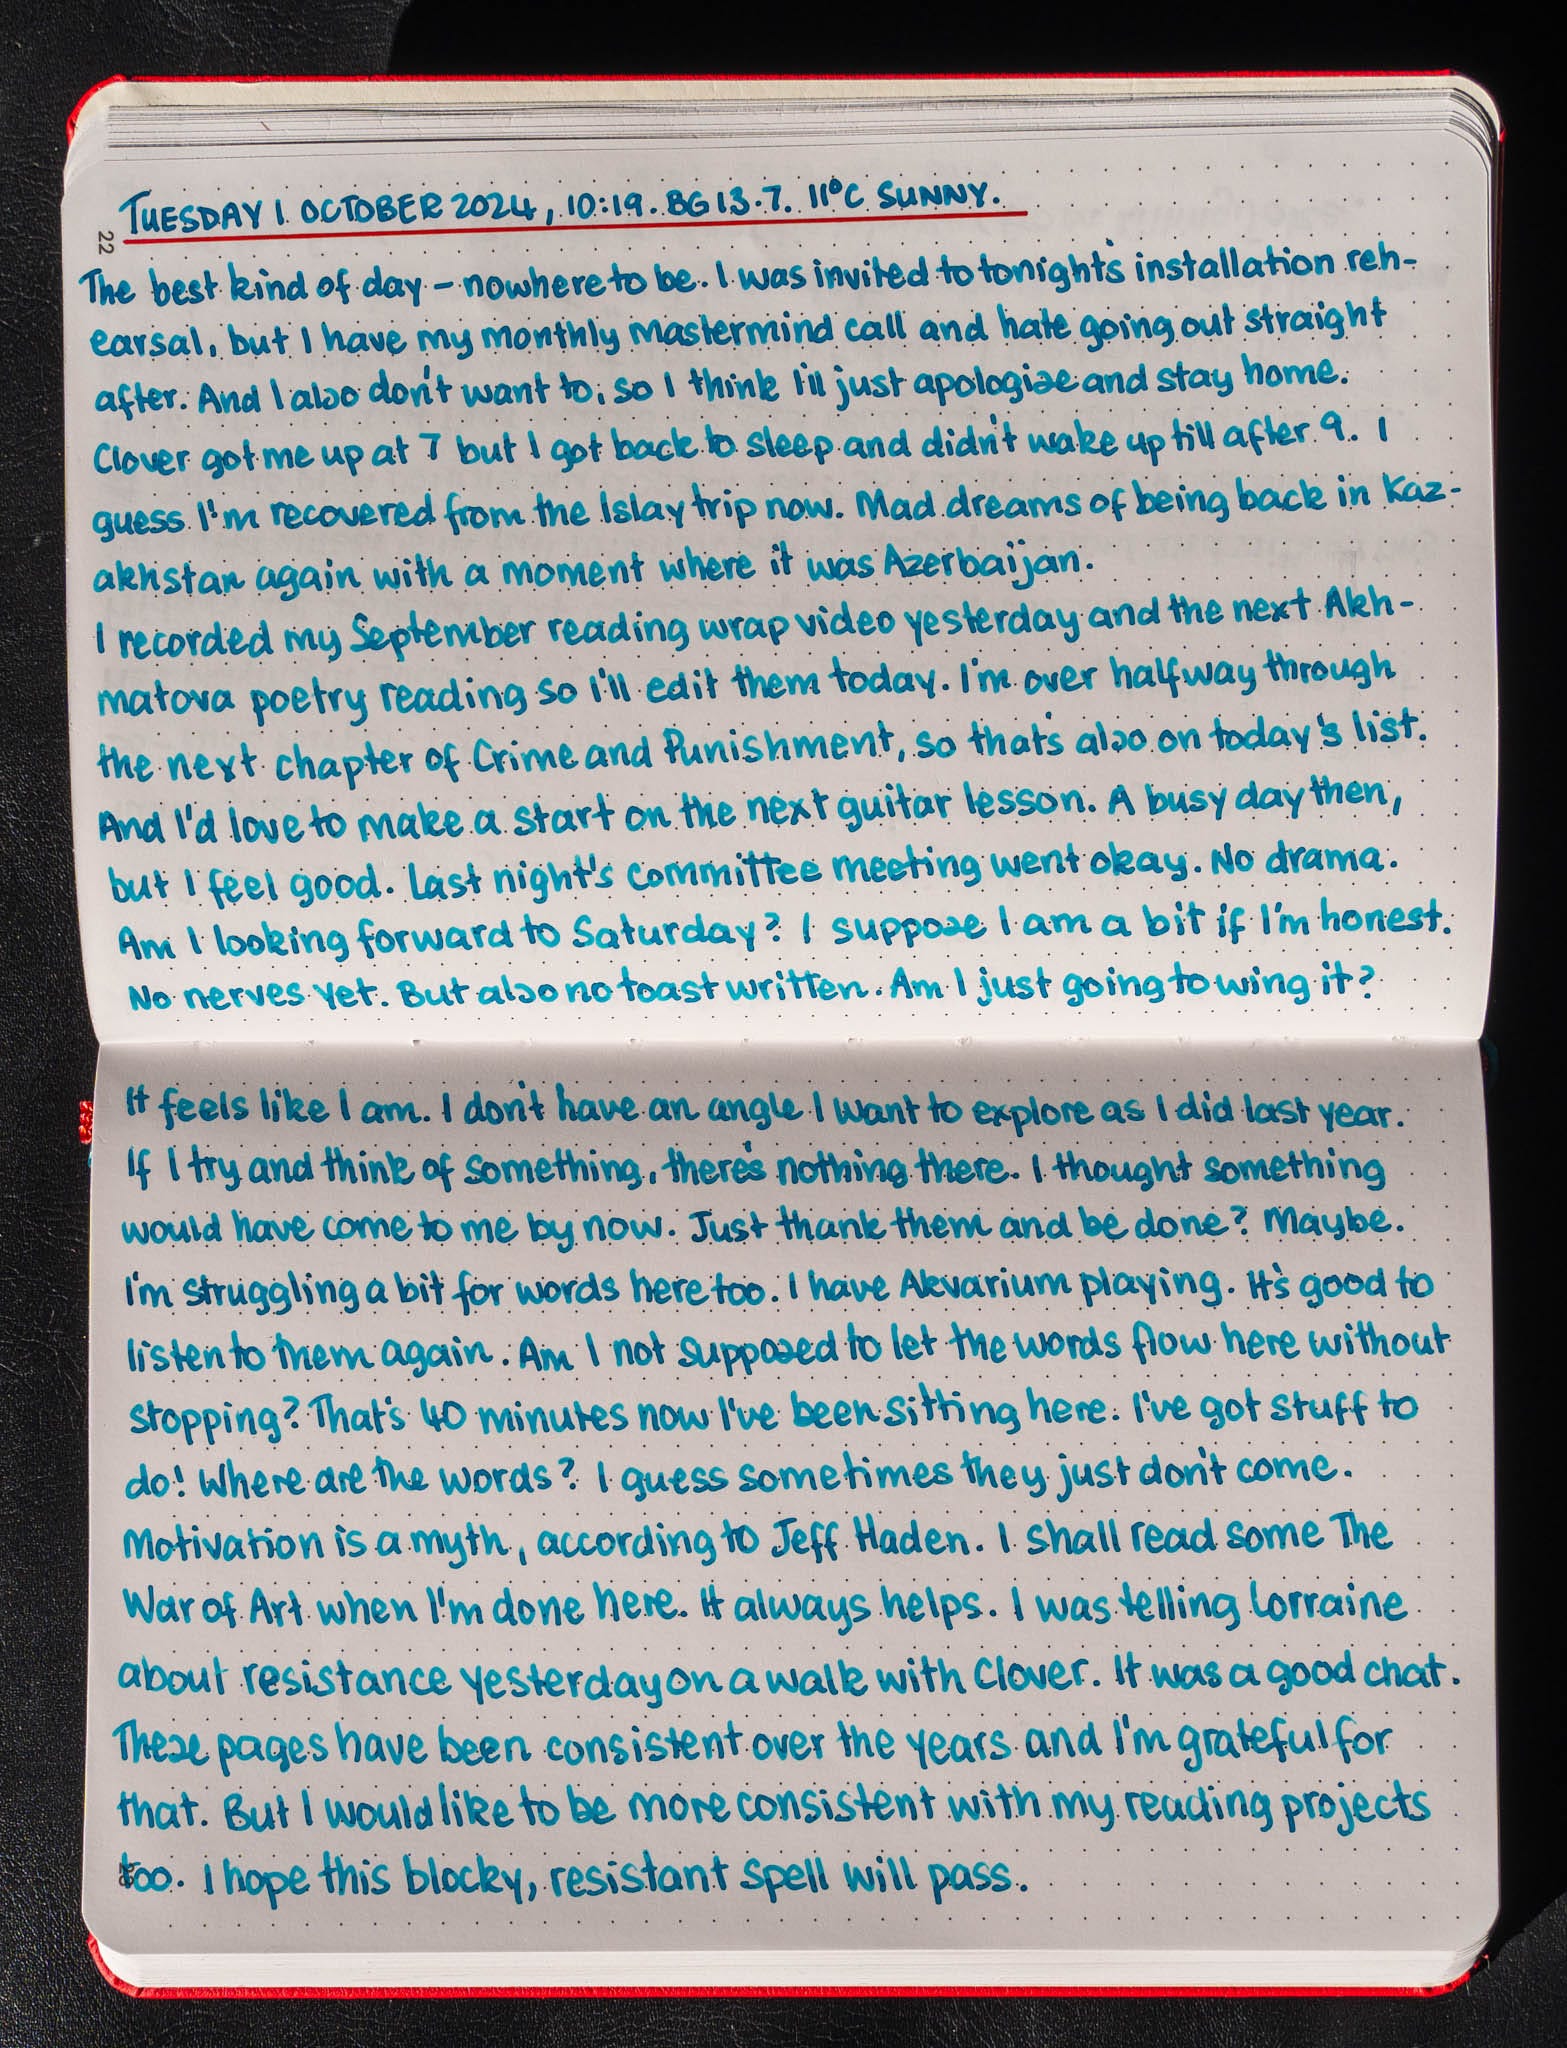 TUESDAY 1 OCTOBER 2024, 10:19. BG 13.7. 11°C SUNNY.
22
The best kind of day – nowhere to be. I was invited to tonight's installation reh-
earsal, but I have my monthly mastermind call and hate going out straight
after. And I also don't want to, so I think I'll just apologise and stay home.
Clover got me up at 7 but I got back to sleep and didn't wake up till after 9. I
guess I'm recovered from the Islay trip now. Mad dreams of being back in Kaz-
akhstan again with a moment where it was Azerbaijan.
I recorded my September reading wrap video yesterday and the next Akh-
matova poetry reading so I'll edit them today. I'm over halfway through
the next chapter of Crime and Punishment, so that's also on today's list.
And I'd love to make a start on the next guitar lesson. A busy day then,
but I feel good. Last night's committee meeting went okay. No drama.
Am I looking forward to Saturday? I suppose I am a bit if I'm honest.
No nerves yet. But also no toast written. Am I just going to wing it?
It feels like I am. I don't have an angle I want to explore as I did last year.
If I try and think of something, there's nothing there. I thought something
would have come to me by now. Just thank them and be done? Maybe.
I'm struggling a bit for words here too. I have Akvarium playing. It's good to
listen to them again. Am I not supposed to let the words flow here without
stopping? That's 40 minutes now I've been sitting here. I've got stuff to
do! Where are the words? I guess sometimes they just don't come.
Motivation is a myth, according to Jeff Haden. I shall read some The
War of Art when I'm done here. It always helps. I was telling Lorraine
about resistance yesterday on a walk with Clover. It was a good chat.
These pages have been consistent over the years and I'm grateful for
that. But I would like to be more consistent with my reading projects
too. I hope this blocky, resistant spell will pass.